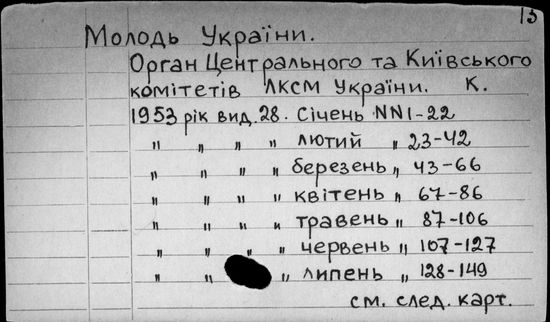 13
Молодь України.
Орган Центрального та Київського
комітетів ЛКСМ України. К.
1953 рік вид. 28. Січень NN1-22
" " " " лютий " 23-42
" " " " березень " 43-66
" " " " квітень " 67-86
" " " " травень " 87-106
" " " " червень " 107-127
" " " липень " 128-149
см. след. карт.